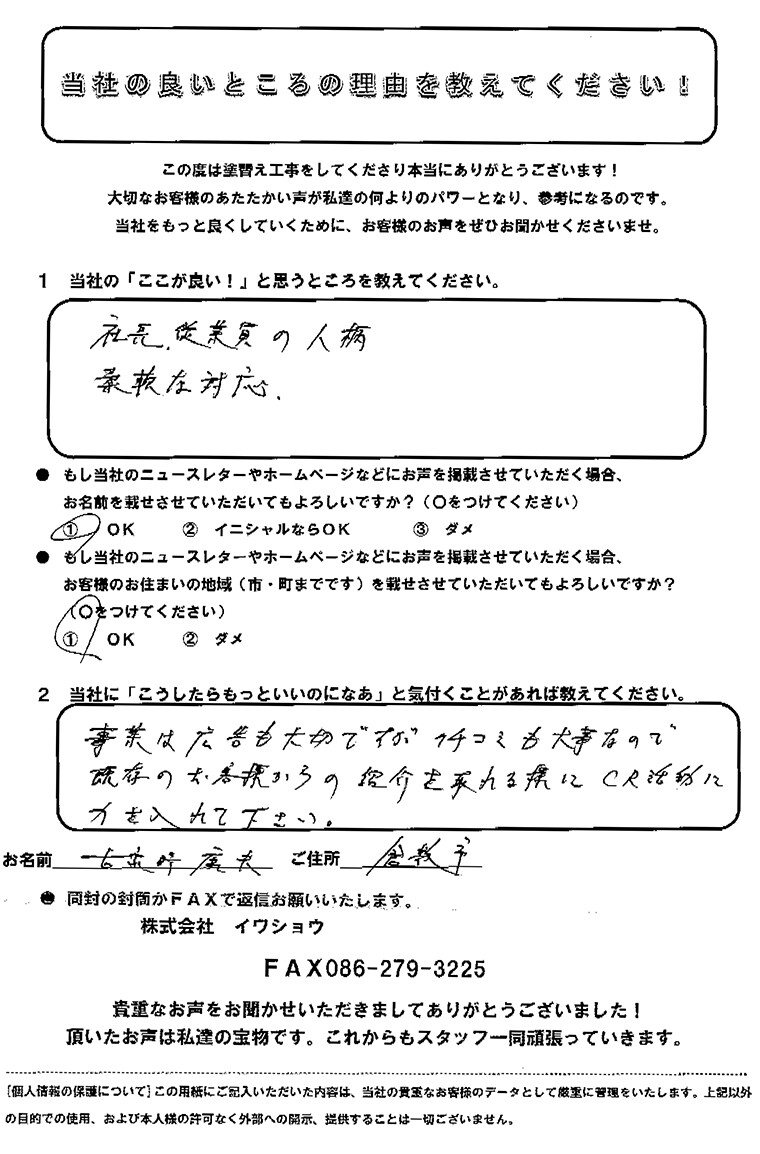 当社の良いところの理由を教えてください！
この度は塗替え工事をしてくださり本当にありがとうございます！
大切なお客様のあたたかい声が私達の何よりのパワーとなり、参考になるのです。
当社をもっと良くしていくために、お客様のお声をぜひお聞かせくださいませ。
1 当社の「ここが良い！」と思うところを教えてください。
社長、従業員の人柄
柔軟な対応、
● もし当社のニュースレターやホームページなどにお声を掲載させていただく場合、
お名前を載せさせていただいてもよろしいですか？（○をつけてください）
① OK ② イニシャルならOK ③ ダメ
● もし当社のニュースレターやホームページなどにお声を掲載させていただく場合、
お客様のお住まいの地域（市・町までです）を載せさせていただいてもよろしいですか？
（○をつけてください）
① OK ② ダメ
2 当社に「こうしたらもっといいのになあ」と気付くことがあれば教えてください。
事業は広告も大切ですが 口チコミも大事なので
既存のお客様からの紹介を取れる様に CR活動に
力を入れて下さい。
お名前 ご住所 倉敷市
● 同封の封筒かＦＡＸで返信お願いいたします。
株式会社 イワショウ
ＦＡＸ086-279-3225
貴重なお声をお聞かせいただきましてありがとうございました！
頂いたお声は私達の宝物です。これからもスタッフ一同頑張っていきます。
［個人情報の保護について］この用紙にご記入いただいた内容は、当社の貴重なお客様のデータとして厳重に管理をいたします。上記以外
の目的での使用、および本人様の許可なく外部への開示、提供することは一切ございません。